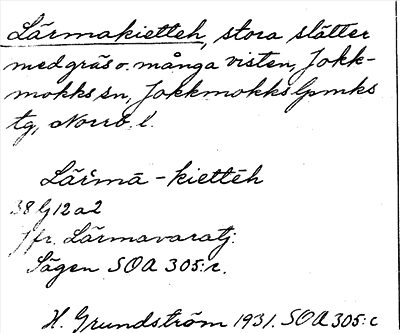 Lärmakietteh, stora slätter
med gräs o. många visten, Jokk-
mokks sn, Jokkmokks lpmks
tg, Norrb. l.
Lärmā - kiettēh
38 G12 a2
Jfr. Lärmavaratj:
Sägen SOA 305:c.
H. Grundström 1931. SOA 305:c